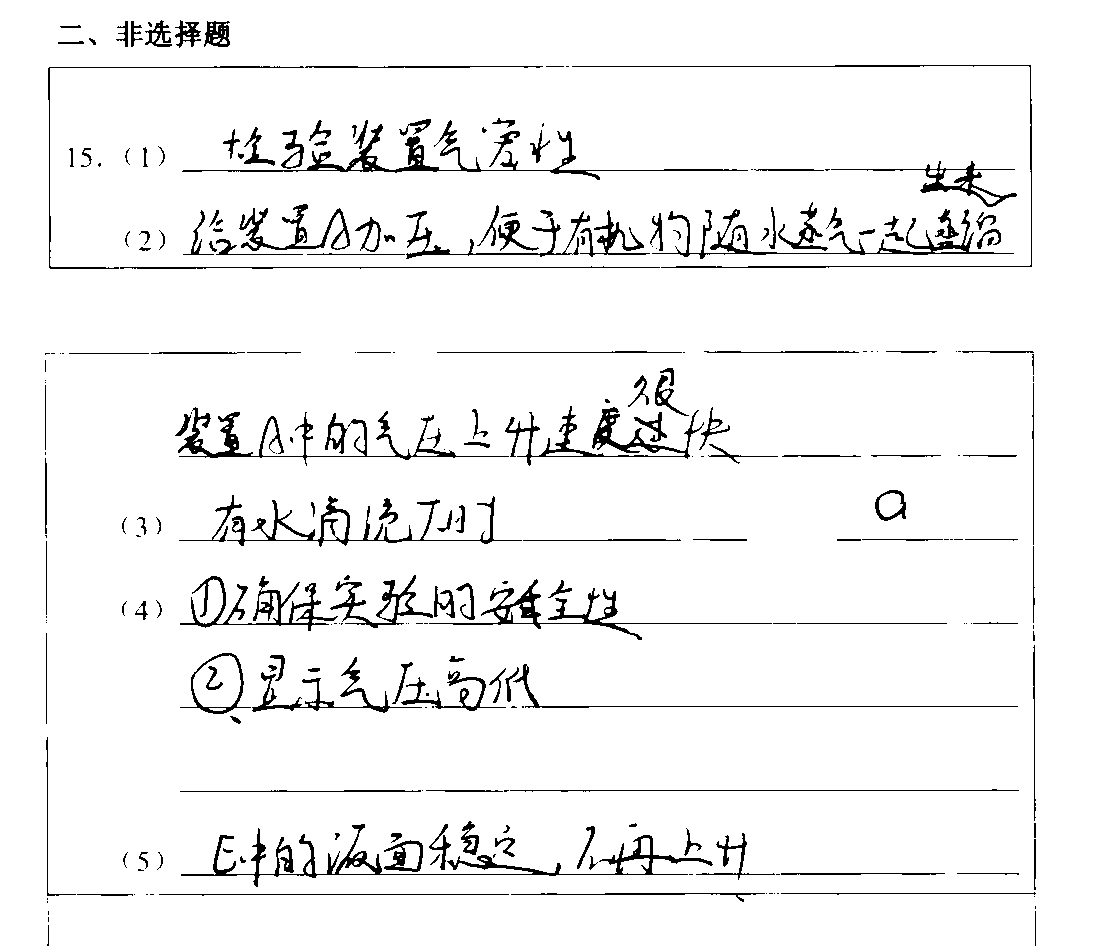 二、非选择题
15.（1） 检验装置气密性
出来
（2） 给装置A加压，便于有机物随水蒸气一起蒸馏
很
装置A中的气压上升速度过快
（3） 有水滴流下时 a
（4） ①确保实验的安全性
②显示气压高低
（5） E中的液面稳定，不再上升